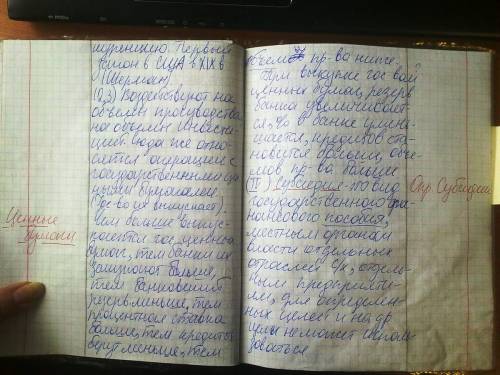 шрению. Первый
закон в США в XIX в
(Шерман)
10,3) Воздействуют на
объемы производства
на объемы инвести-
ций. Сюда же отно-
сятся операции с
государственными цен
ными бумагами.
(гос-во их выпускает).
Ценные
бумаги
Чем больше выпус-
кается гос. ценных
бумаг, тем банки их
закупают больше,
тем банковский
резерв меньше, тем
процентная ставка
больше, тем кредитов
берут меньше, тем
объем пр-ва ниже.
При выкупе гос-вом
ценных бумаг, резерв
банка увеличивает-
ся, % в банке умень-
шается, кредитов ста-
новится больше, объе-
мов пр-ва больше
IV) Субсидия - то вид
Опр. Субсидии
государственного фи-
нансового пособия,
местным органам
власти отдельных
отраслей ч/х, отдель-
ным предприяти-
ям, для определен-
ных целей и на др
цели не может исполь-
зоваться